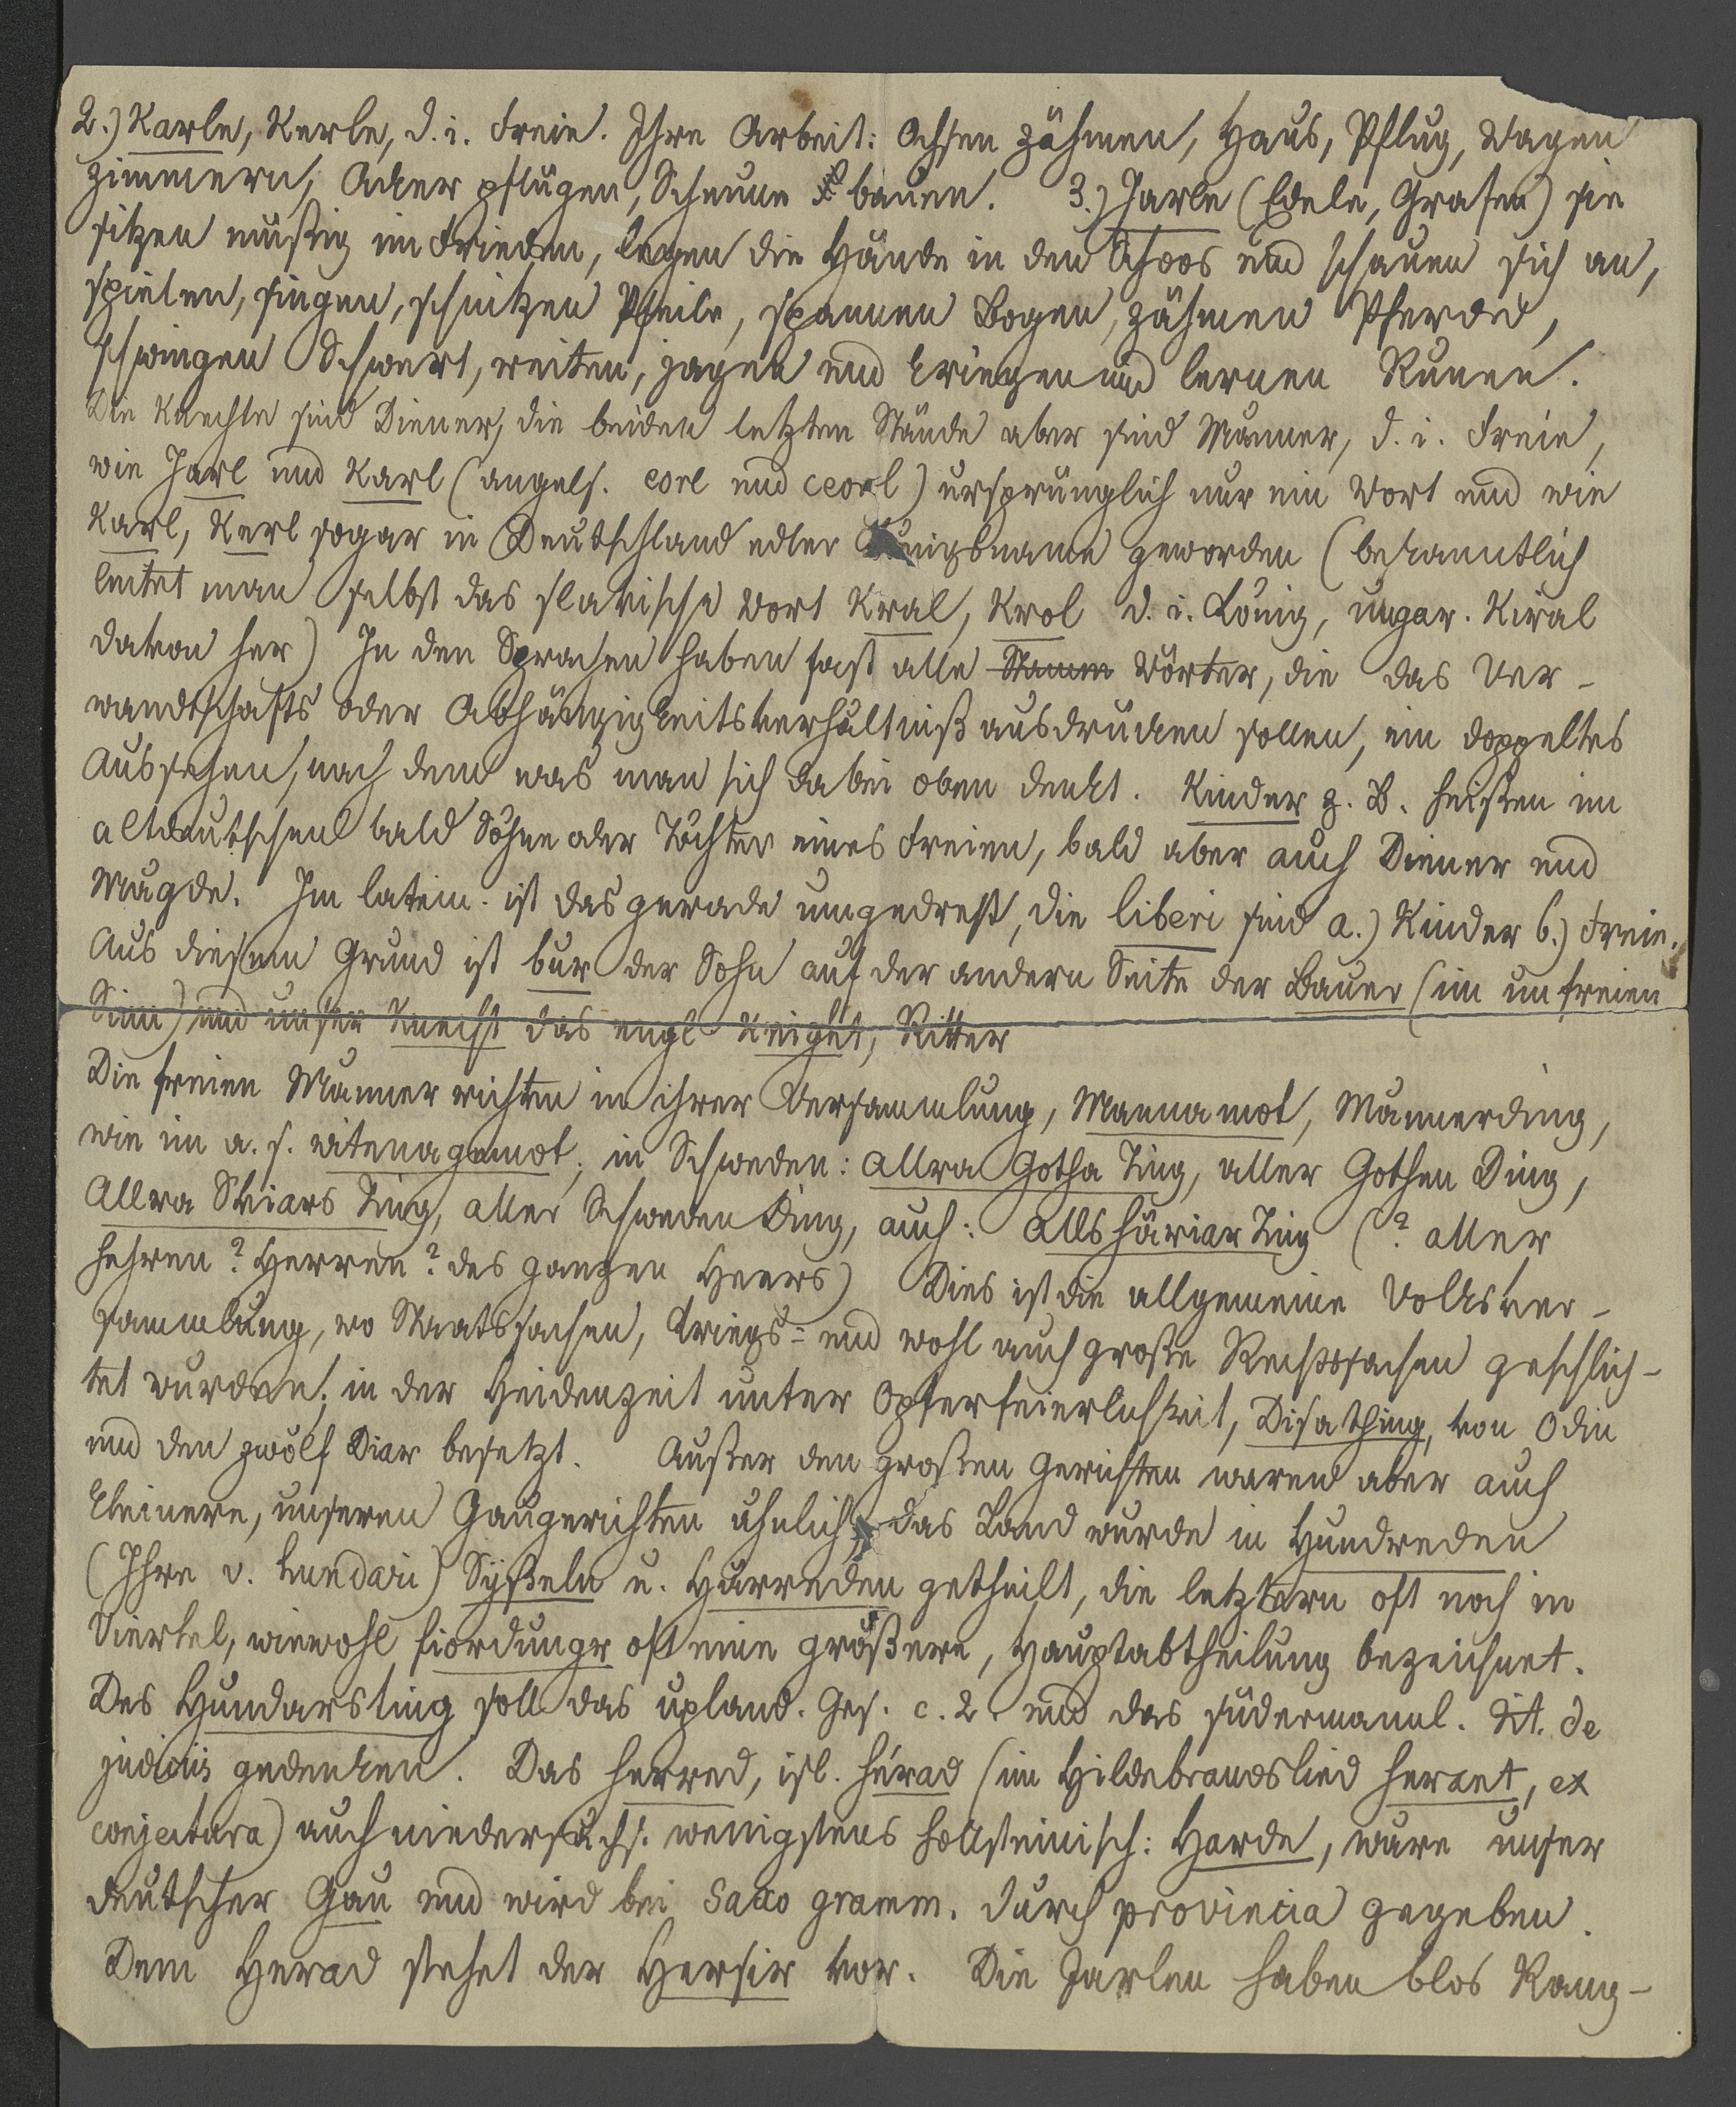 2.) Karle, Kerle, d. i. Freie. Ihre Arbeit: Ochsen zähmen, Haus, Pflug, Wagen
zimmern, Acker pflügen, Scheune bauen. 3.) Jarle (Edele, Grafen) sie
sitzen müßig im Frieden, legen die Hände in den Schoos und schauen sich an,
spielen, singen, schnitzen Pfeile, spannen Bogen, zähmen Pferde,
schwingen Schwert, reiten, jagen und kriegen und lernen Runen.
Die Knechte sind Diener, die beiden letzten Stände aber sind Männer, d. i. Freie,
wie Jarl und Karl (angels. eorl und ceorl) ursprünglich nur ein Wort und wie
Karl, Kerl sogar in Deutschland edler Königsname geworden (bekanntlich
leitet man selbst das slavische Wort Kral, Krol d. i. König, ungar. Kiral
davon her) In den Sprachen haben fast alle Stamm Wörter, die das Ver-
wandtschafts oder Abhängigkeitsverhältniß ausdrücken sollen, ein doppeltes
Aussehen, nach dem was man sich dabei oben denkt. Kinder z. B. heißen im
altdeutschen bald Söhne oder Töchter eines Freien, bald aber auch Diener und
Mägde. Im latein. ist das gerade umgedreht, die liberi sind a.) Kinder b.) Freie.
Aus diesem Grund ist bur der Sohn auf der andern Seite der Bauer (im unfreien
Sinn) und unser Knecht das engl Knight, Ritter
Die freien Männer richten in ihrer Versammlung, Mannamot, Männerding,
wie im a. s. witenagemot; in Schweden: allra Gotha Ting, aller Gothen Ding,
Allra Sviars Ting, aller Schweden Ding, auch: alls häriar Ting (? aller
hehren? Herren? des ganzen Heers) Dies ist die allgemeine Volksver-
sammlung, wo Staatssachen, Kriegs- und wohl auch große Rechtssachen geschlich-
tet wurden; in der Heidenzeit unter Opferfeierlichkeit, Disathing, von Odin
und den zwölf Diar besetzt. Außer den großen Gerichten waren aber auch
kleinere, unseren Gaugerichten ähnlich, das Land wurde in Hundreden
(Ihre v. hundari) Syßeln u. Harreden getheilt, die letztern oft noch in
Viertel, wiewohl fiordungr oft eine größere, Hauptabtheilung bezeichnet.
Des Hundarsting soll das upland. Ges. c. 2. und das südermannl. tit. de
judiciis gedenken. Das herred, isl. hérad (im Hildebrandslied heraet, ex
conjectura) auch niedersächs. wenigstens hollsteinisch: Harde, wäre unser
deutscher Gau und wird bei Saxo gramm. durch provincia gegeben.
Dem Herad stehet der Hersir vor. Die Jarlen haben blos Rang-